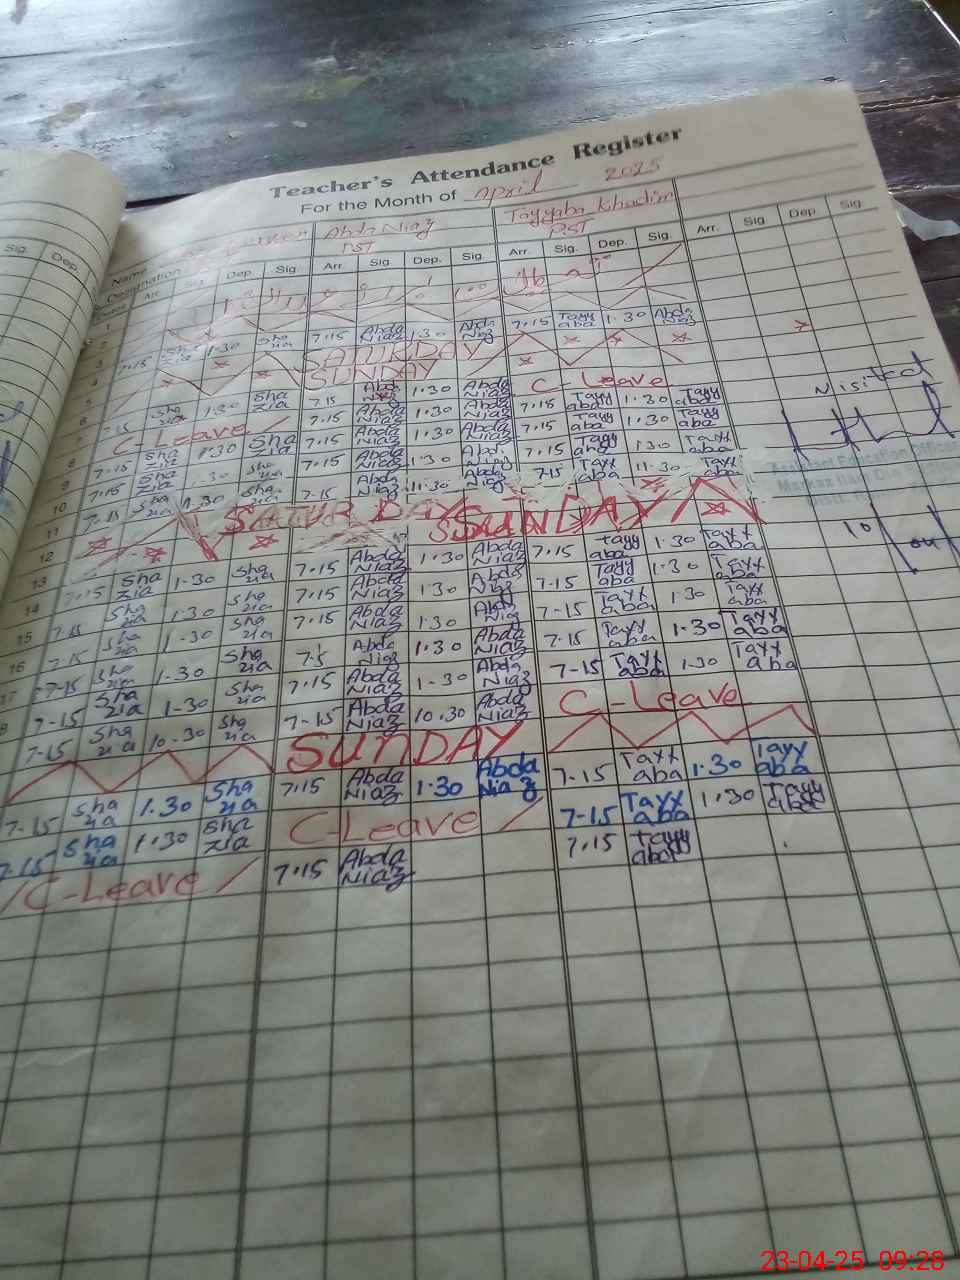 Teacher's Attendance Register
For the Month of April 2025
Name Abda Niaz Tayyaba Khadim
Designation PST PST
Arr. Sig. Dep. Sig. Arr. Sig. Dep. Sig. Arr. Sig. Dep. Sig. Arr. Sig. Dep. Sig.
1
2 7-15 Sha zia 1-30 Sha zia 7-15 Abda Niaz 1-30 Abda Niaz 7-15 Tayy aba 1-30 Abda Niaz
3 SATURDAY
4 SUNDAY
5 7-15 Sha zia 1-30 Sha zia 7-15 1-30 Abda Niaz C-Leave
C-Leave 7-15 Abda Niaz 1-30 Abda Niaz 7-15 Tayy aba 1-30 Tayy aba
7 7-15 Sha zia 1-30 Sha zia 7-15 Abda Niaz 1-30 Abda Niaz 7-15 Tayy aba 1-30 Tayy aba
8 7-15 Sha zia 1-30 Sha zia 7-15 Abda Niaz 1-30 7-15 Tayy 1-30 Tayy aba
9 7-15 Sha zia 11-30 Sha zia 7-15 Abda Niaz 11-30 Abda Niaz 7-15 Tayy aba 11-30 Tayy aba
10 SATURDAY SUNDAY
11
12 7-15 Sha zia 1-30 Sha zia 7-15 Abda Niaz 1-30 Abda Niaz 7-15 Tayy aba 1-30 Tayy aba
13 7-15 Sha zia 1-30 Sha zia 7-15 Abda Niaz 1-30 Abda Niaz 7-15 Tayy aba 1-30 Tayy aba
14 7-15 Sha zia 1-30 Sha zia 7-15 Abda Niaz 1-30 Abda Niaz 7-15 Tayy aba 1-30 Tayy aba
15 7-15 Sha zia 1-30 Sha zia 7-15 Abda Niaz 1-30 Abda Niaz 7-15 Tayy aba 1-30 Tayy aba
16 7-15 Sha zia 1-30 Sha zia 7-15 Abda Niaz 1-30 Abda Niaz 7-15 Tayy aba 1-30 Tayy aba
17 7-15 Sha zia 10-30 Sha zia 7-15 Abda Niaz 10-30 Abda Niaz C-Leave
SUNDAY
7-15 Sha zia 1-30 Sha zia 7-15 Abda Niaz 1-30 Abda Niaz 7-15 Tayy aba 1-30 Tayy aba
7-15 Sha zia 1-30 Sha zia C-Leave 7-15 Tayy aba 1-30 Tayy aba
C-Leave 7-15 Abda Niaz 7-15 Tayy aba
Visited
Assistant Education Officer
Markaz
Sig. Dep.
23-04-25 09:28